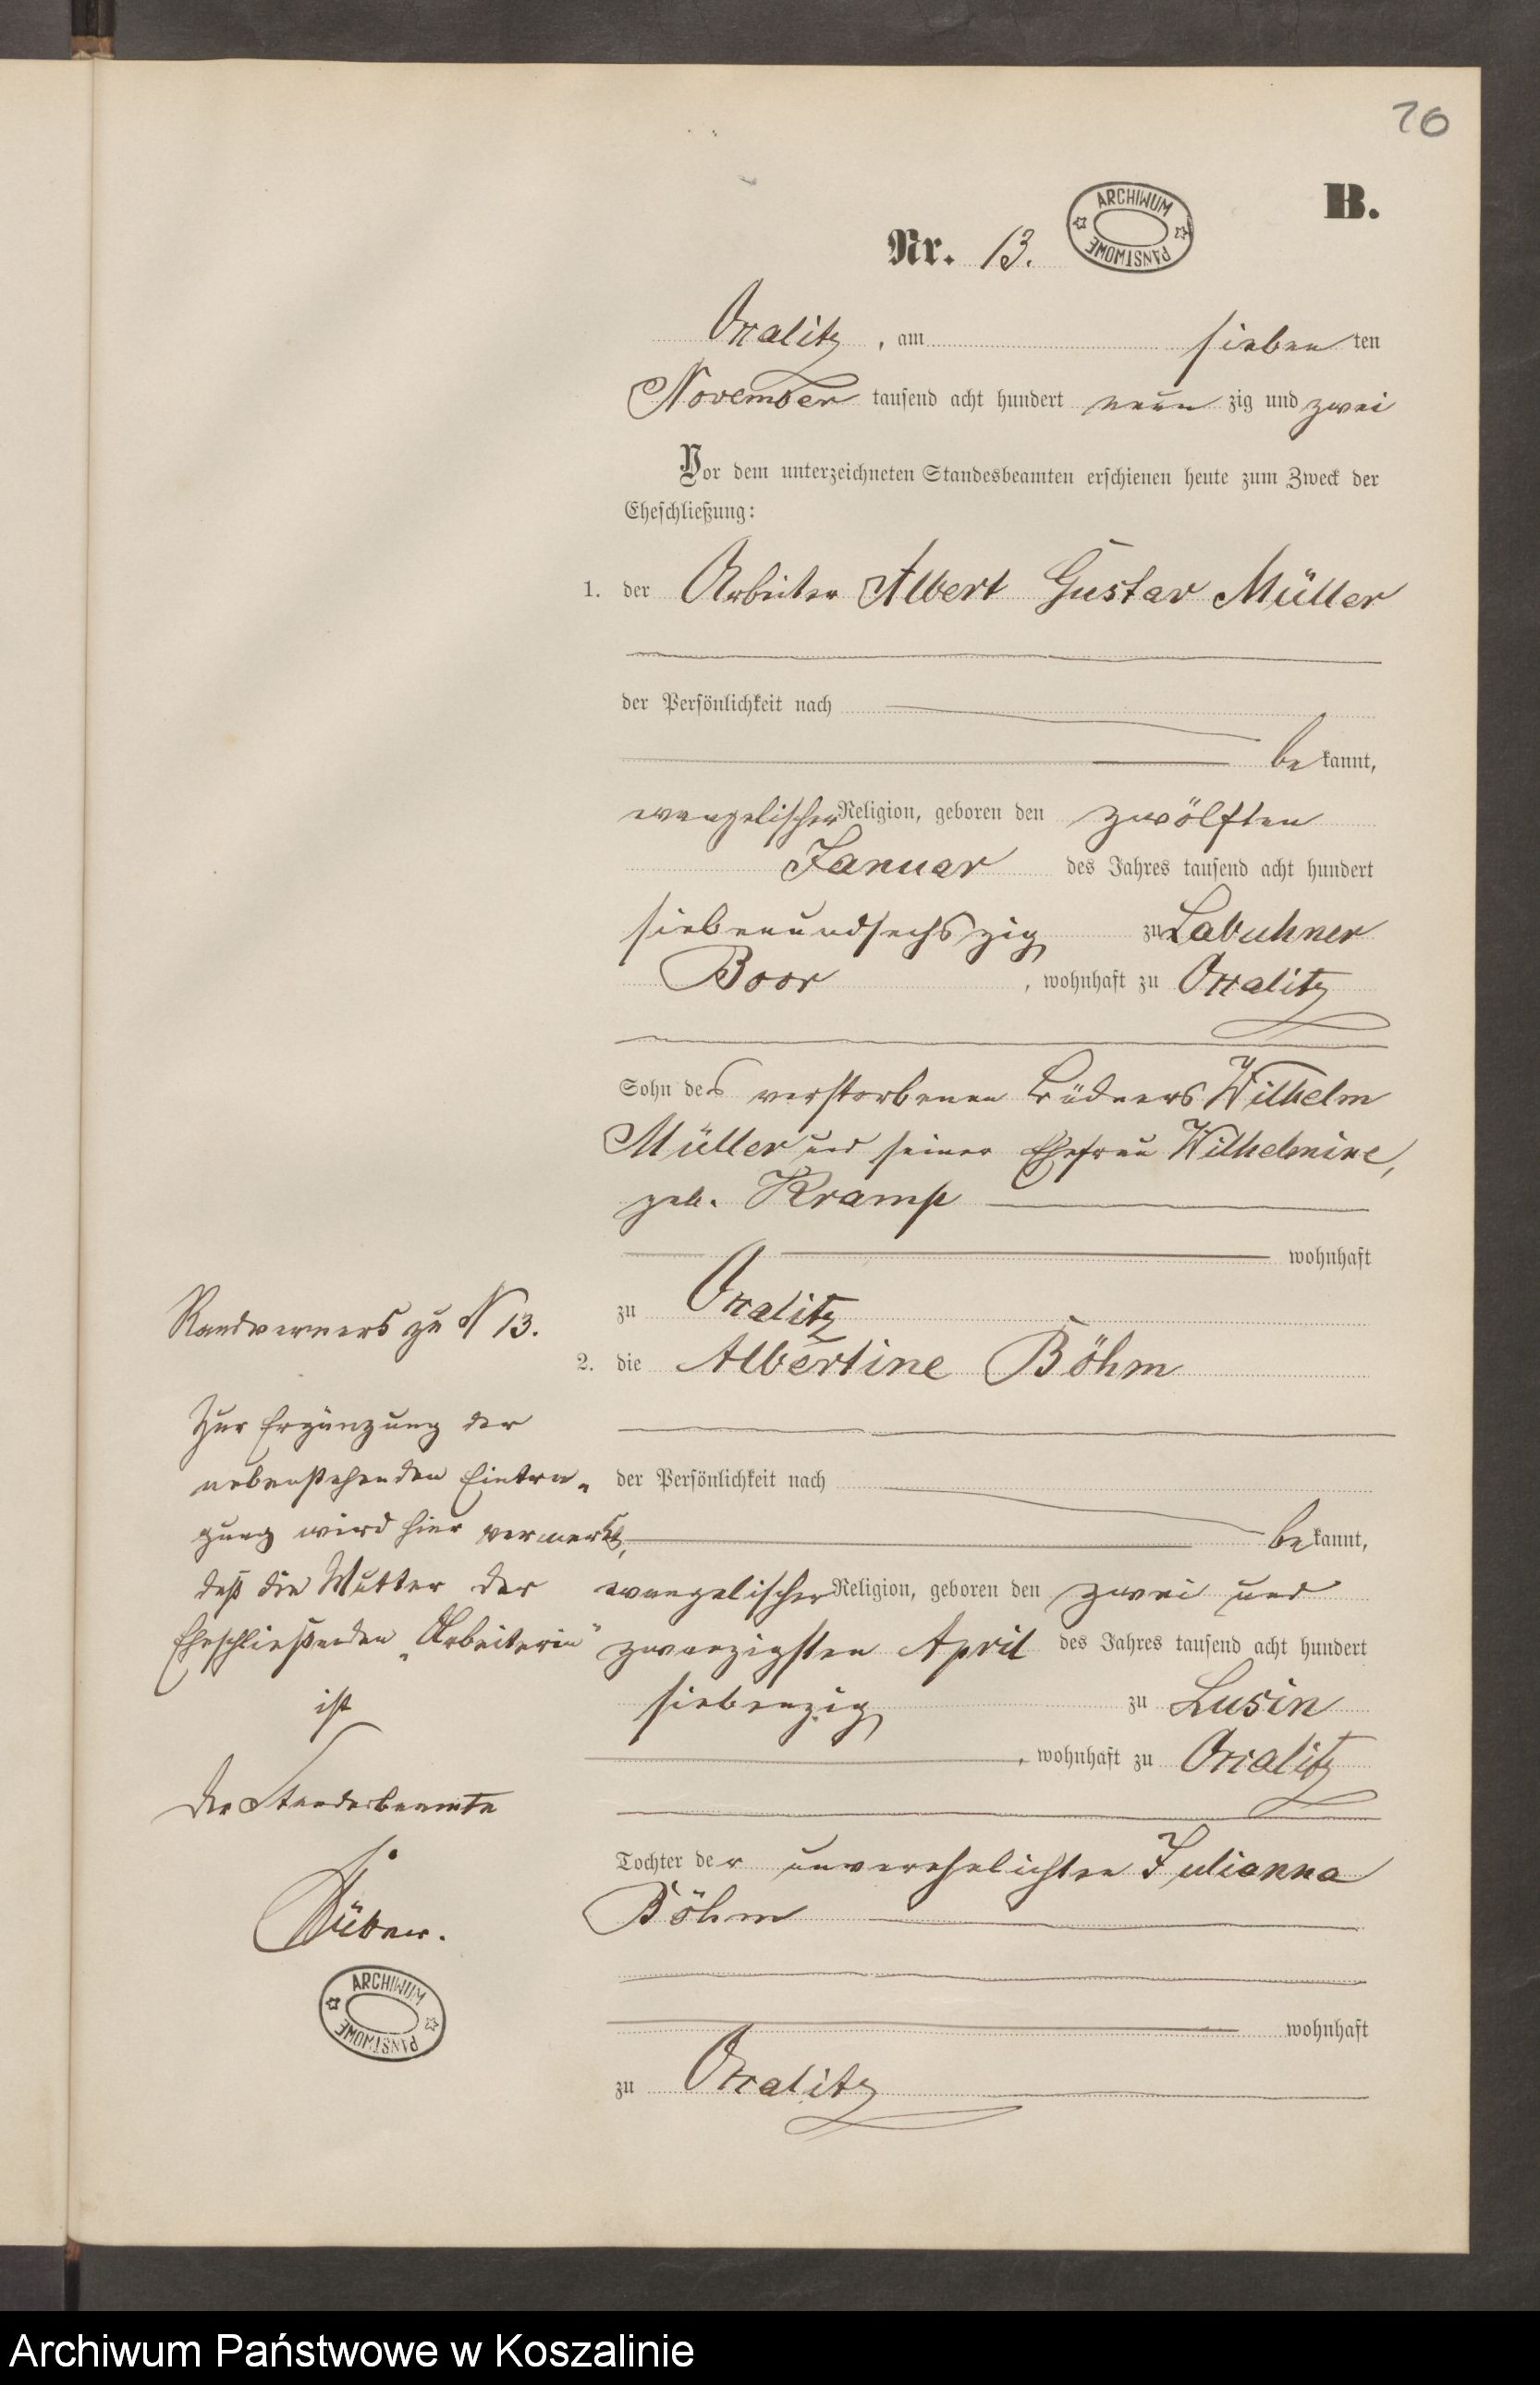 76
B.
ARCHIWUM PAŃSTWOWE
Nr. 13.
Ossalitz, am sieben ten
November tausend acht hundert neun zig und zwei
Vor dem unterzeichneten Standesbeamten erschienen heute zum Zweck der
Eheschließung:
1. der Arbeiter Albert Gustav Müller
der Persönlichkeit nach
be kannt,
evangelischer Religion, geboren den zwölften
Januar des Jahres tausend acht hundert
siebenundsechszig zu Labuhner
Boor, wohnhaft zu
Sohn des verstorbenen Büdners Wilhelm
Müller und seiner Ehefrau Wilhelmine,
geb. Kramp
wohnhaft
zu
2. die Albertine Böhm
der Persönlichkeit nach
be kannt,
evangelischer Religion, geboren den zwei und
zwanzigsten April des Jahres tausend acht hundert
siebenzig zu Lusin
, wohnhaft zu
Tochter der unverehelichten Julianna
Böhm
wohnhaft
zu
Randvermerk zu N 13.
Zur Ergänzung der
nebenstehenden Eintra-
gung wird hier vermerkt,
daß die Mutter der
Eheschließenden „Arbeiterin“
ist
Der Standesbeamte
ARCHIWUM PAŃSTWOWE
Archiwum Państwowe w Koszalinie